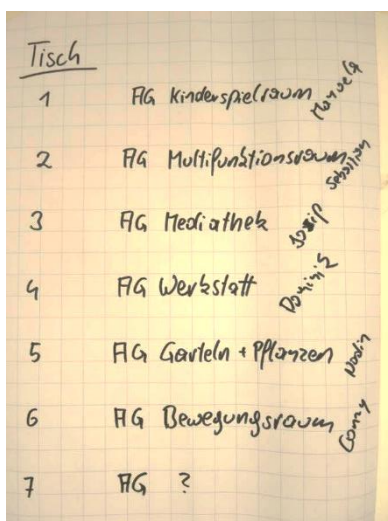 Tisch
1 AG Kinderspielraum Manuela
2 AG Multifunktionsraum Sebastian
3 AG Mediathek Josip
4 AG Werkstatt Dominik
5 AG Garteln + Pflanzen Nadin
6 AG Bewegungsraum Conny
7 AG ?